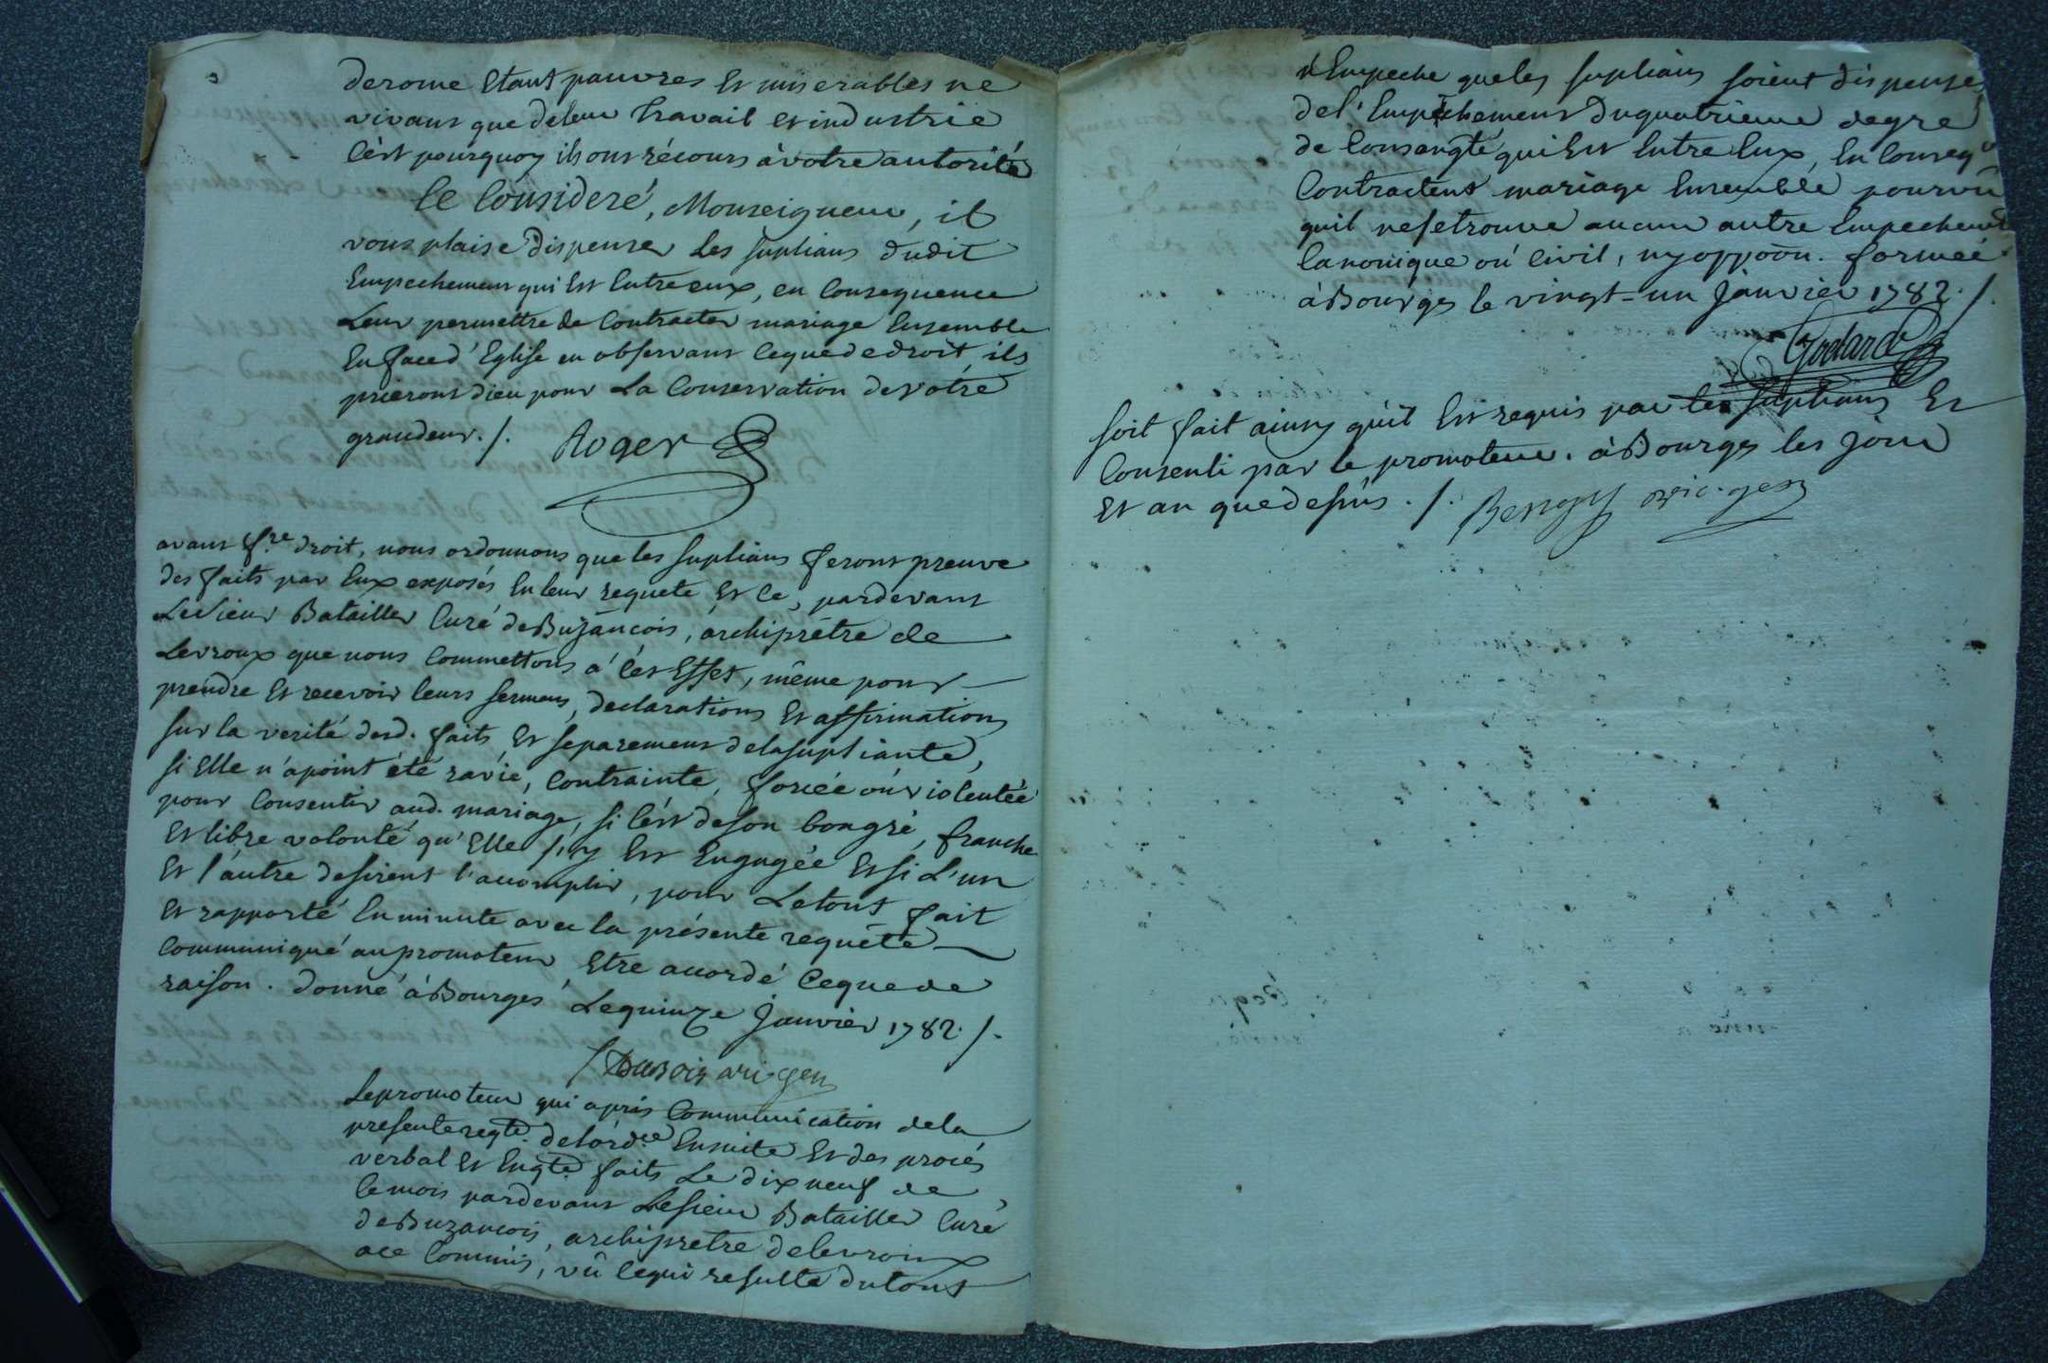 derome Etant pauvres Et miserables ne
vivans que deleur travail et industrie
C'est pourquoy ils ont récours à votre autorité
Ce Consideré, Monseigneur, il
vous plaise dispenser Les suplians dudit
Empechement qui Est Entre eux, en Consequence
Leur permettre de Contracter mariage Ensemble
En face d'Eglise en observant Ceque de droit, ils
prieront dieu pour La Conservation de votre
grandeur ./. Roger
avant f.re droit, nous ordonnons que les suplians feront preuve
des faits par Eux exposés En leur requete Et Ce, pardevant
Le Sieur Batailler Curé de Buzançois, archiprêtre de
Levroux que nous Commettons à Cet Effet, même pour
prendre Et recevoir leurs sermens, declarations Et affirmations
sur la verité desd. faits, Et separement de la supliante,
si Elle n'a point été ravie, Contrainte, forcée où violentée
pour Consentir aud. mariage, si C'est de son bon gré, franche
Et libre volonté qu'Elle s'y Est Engagée Et si L'un
Et l'autre desirent l'accomplir, pour Le tout fait
Et rapporté En minute avec la présente requête
Communiqué au promoteur Etre accordé Ceque de
raison. donné à Bourges Le quinze Janvier 1782 ./.
Dubois vic. gen
Le promoteur qui après Communication dela
presente reqte. de l'ord.ce Ensuite Et des procés
verbal Et Enqte. faits Le dix neuf de
Ce mois pardevant Le sieur Batailler Curé
de Buzançois, archiprêtre de levroux
a ce Commis, vû Cequi resulte du tout
n'Empeche que les suplians soient dispensés
de l'Empêchement du quatrieme degre
de Consangte qui Est Entre Eux, En Conseq.
Contractent mariage Ensemble pourvû
qu'il ne se trouve aucun autre Empechement
Canonique où Civil, ny oppoon. formeé
à Bourges le vingt-un Janvier 1782 ./.
Godard
soit fait ainsy qu'il Est requis par les suplians Et
Consenti par le promoteur. à Bourges les jour
Et an que dessus ./. Bengy vic. gen